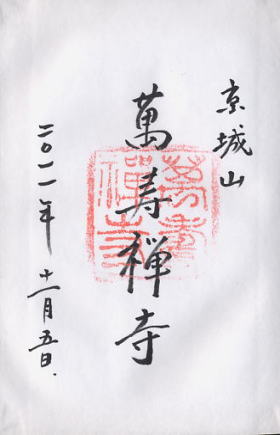 京城山
萬寿禅寺
二〇一一年
十一月五日.